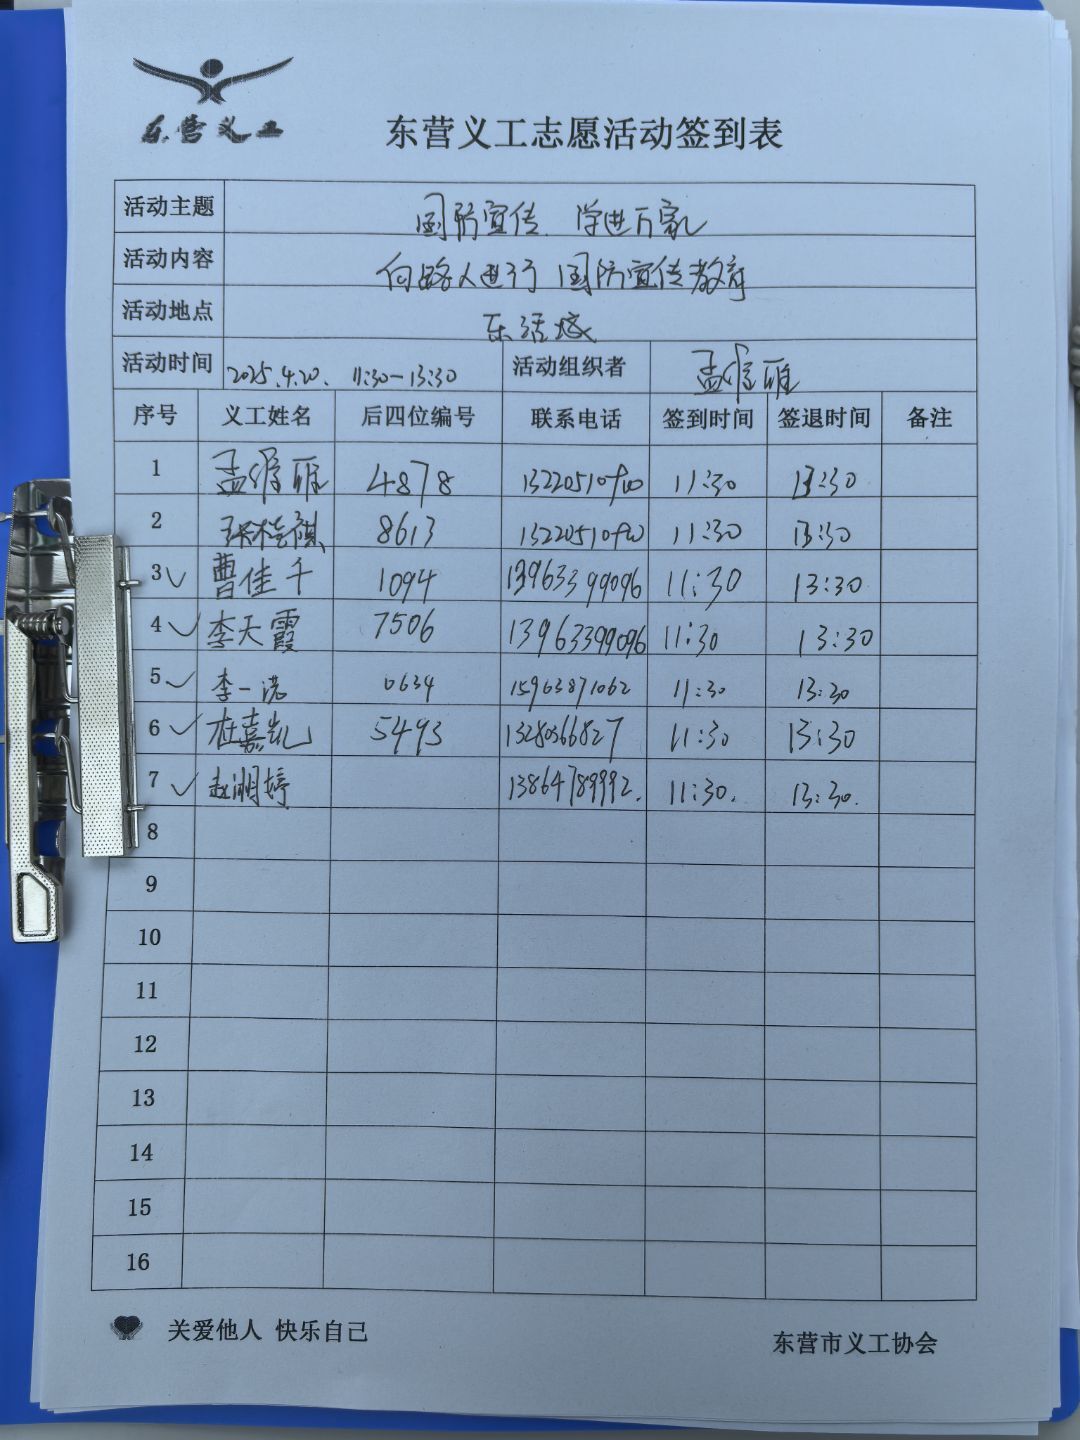 东营义工
东营义工志愿活动签到表
活动主题 国防宣传 学进万家
活动内容 向路人进行国防宣传教育
活动地点 乐活城
活动时间 2025.4.20. 11:30-13:30 活动组织者 孟维雅
序号 义工姓名 后四位编号 联系电话 签到时间 签退时间 备注
1 孟维雅 4878 11:30 13:30
2 8613 11:30 13:30
3 曹佳千 1094 13963399096 11:30 13:30
4 李天霞 7506 13963399096 11:30 13:30
5 李一诺 0634 15963871062 11:30 13:30
6 杜嘉凯 5493 13280366827 11:30 13:30
7 赵湖婷 13864789992. 11:30. 13:30.
8
9
10
11
12
13
14
15
16
关爱他人 快乐自己
东营市义工协会